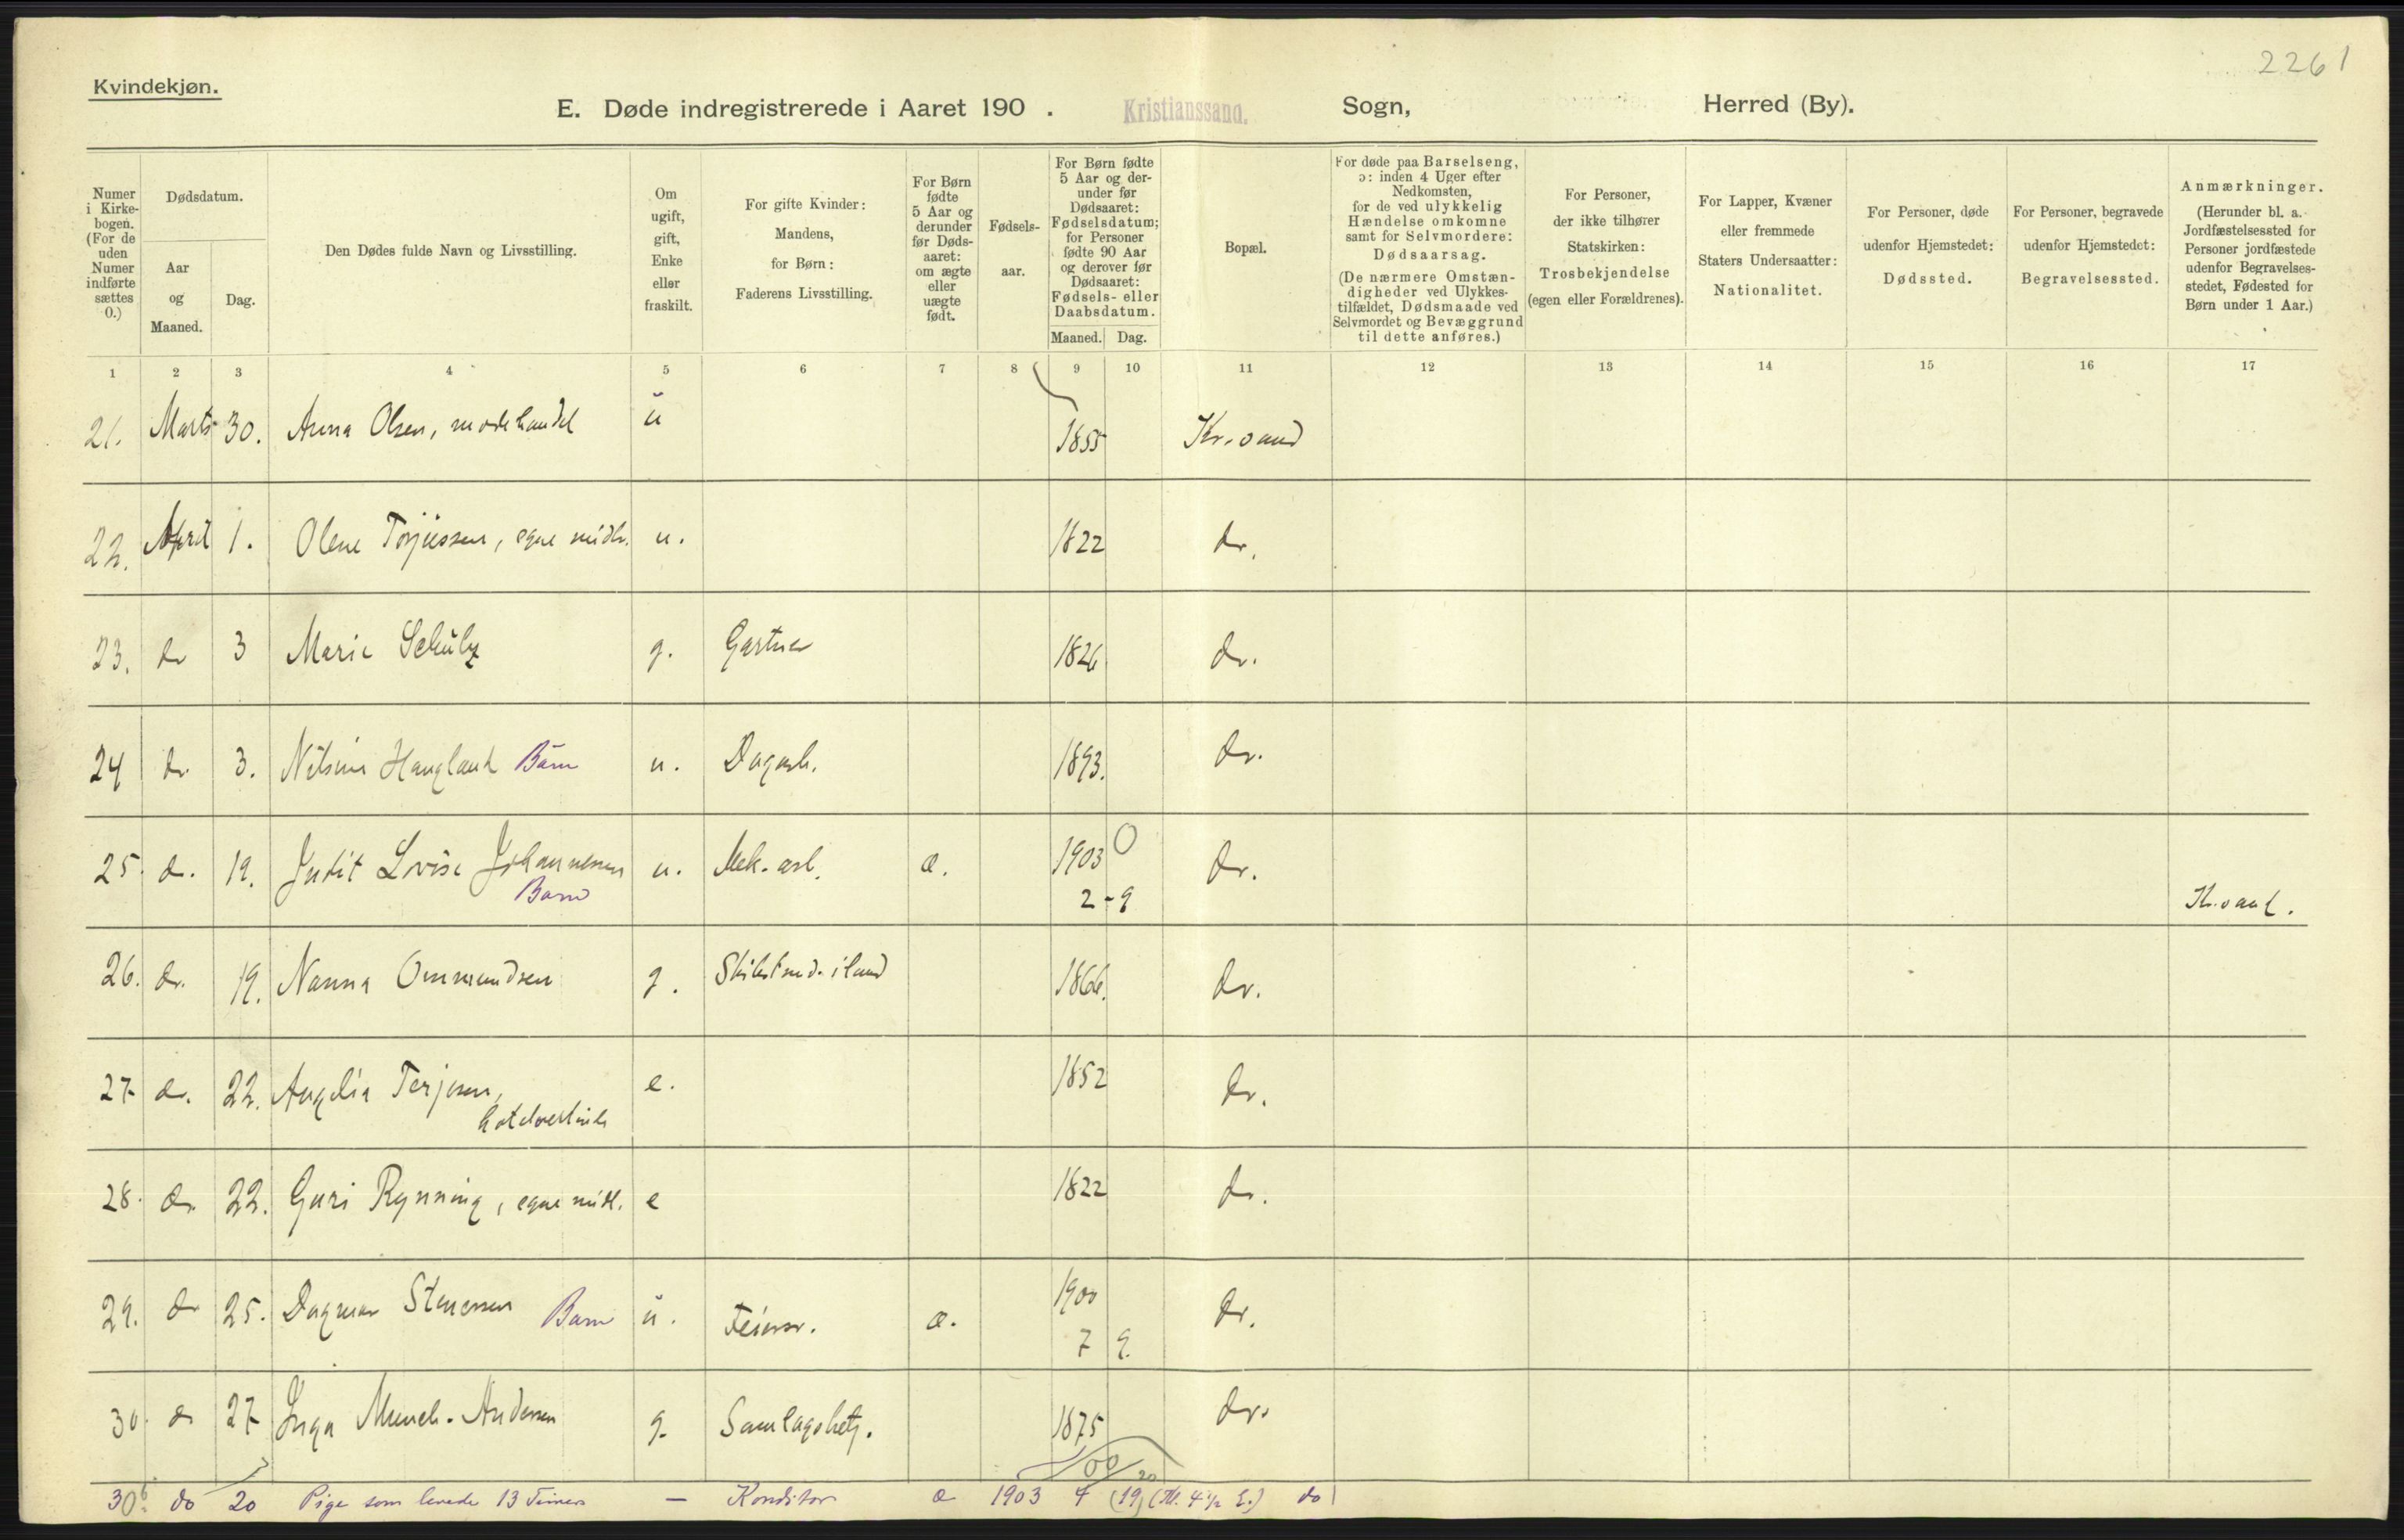 2261
Kvindekjøn.
E. Døde indregistrerede i Aaret 190 . Kristianssand. Sogn, Herred (By).
Numer i Kirke-bogen. (For de uden Numer indførte sættes 0.)
Dødsdatum.
Aar og Maaned.
Dag.
Den Dødes fulde Navn og Livsstilling.
Om ugift, gift, Enke eller fraskilt.
For gifte Kvinder: Mandens, for Børn: Faderens Livsstilling.
For Børn fødte 5 Aar og derunder før Døds-aaret: om ægte eller uægte født.
Fødsels-aar.
For Børn fødte 5 Aar og der-under før Dødsaaret: Fødselsdatum; for Personer fødte 90 Aar og derover før Dødsaaret: Fødsels- eller Daabsdatum.
Maaned. Dag.
Bopæl.
For døde paa Barselseng, ɔ: inden 4 Uger efter Nedkomsten, for de ved ulykkelig Hændelse omkomne samt for Selvmordere: Dødsaarsag. (De nærmere Omstæn-digheder ved Ulykkes-tilfældet, Dødsmaade ved Selvmordet og Bevæggrund til dette anføres.)
For Personer, der ikke tilhører Statskirken: Trosbekjendelse (egen eller Forældrenes).
For Lapper, Kvæner eller fremmede Staters Undersaatter: Nationalitet.
For Personer, døde udenfor Hjemstedet: Dødssted.
For Personer, begravede udenfor Hjemstedet: Begravelsessted.
Anmærkninger. (Herunder bl. a. Jordfæstelsessted for Personer jordfæstede udenfor Begravelses-stedet, Fødested for Børn under 1 Aar.)
1 2 3 4 5 6 7 8 9 10 11 12 13 14 15 16 17
21. Marts 30. Anna Olsen, modehandel u 1855 Kr.sand
22. April 1. Olene Torjussen, egne midl. u. 1822 do.
23. do 3 Marie Schulz g. Gartner 1826 do.
24 do. 3. Nilsine Haugland Barn u. Dagarb. 1893. do.
25. do. 19. Judit Lovise Johannesen u. Mek. arb. æ. 1903 0 do.
Barn 2-9 K.sand.
26. do. 19. Nanna Ommundsen g. 1866. do.
27. do. 22. Angelia Terjesen, e. 1852 do.
28. do. 22. Guri Rynning, egne midl. e 1822 do.
29. do 25. Dagmar Stenersen Barn u. Feiersv. æ. 1900 do.
7 9.
30. do 27 Inga Munch-Andersen g. Samlagsbetj. 1875 do.
30b. do 20 Pige som levede 13 Timer — Konditor æ 1903 4 (19) (Kl. 4½ E.) do